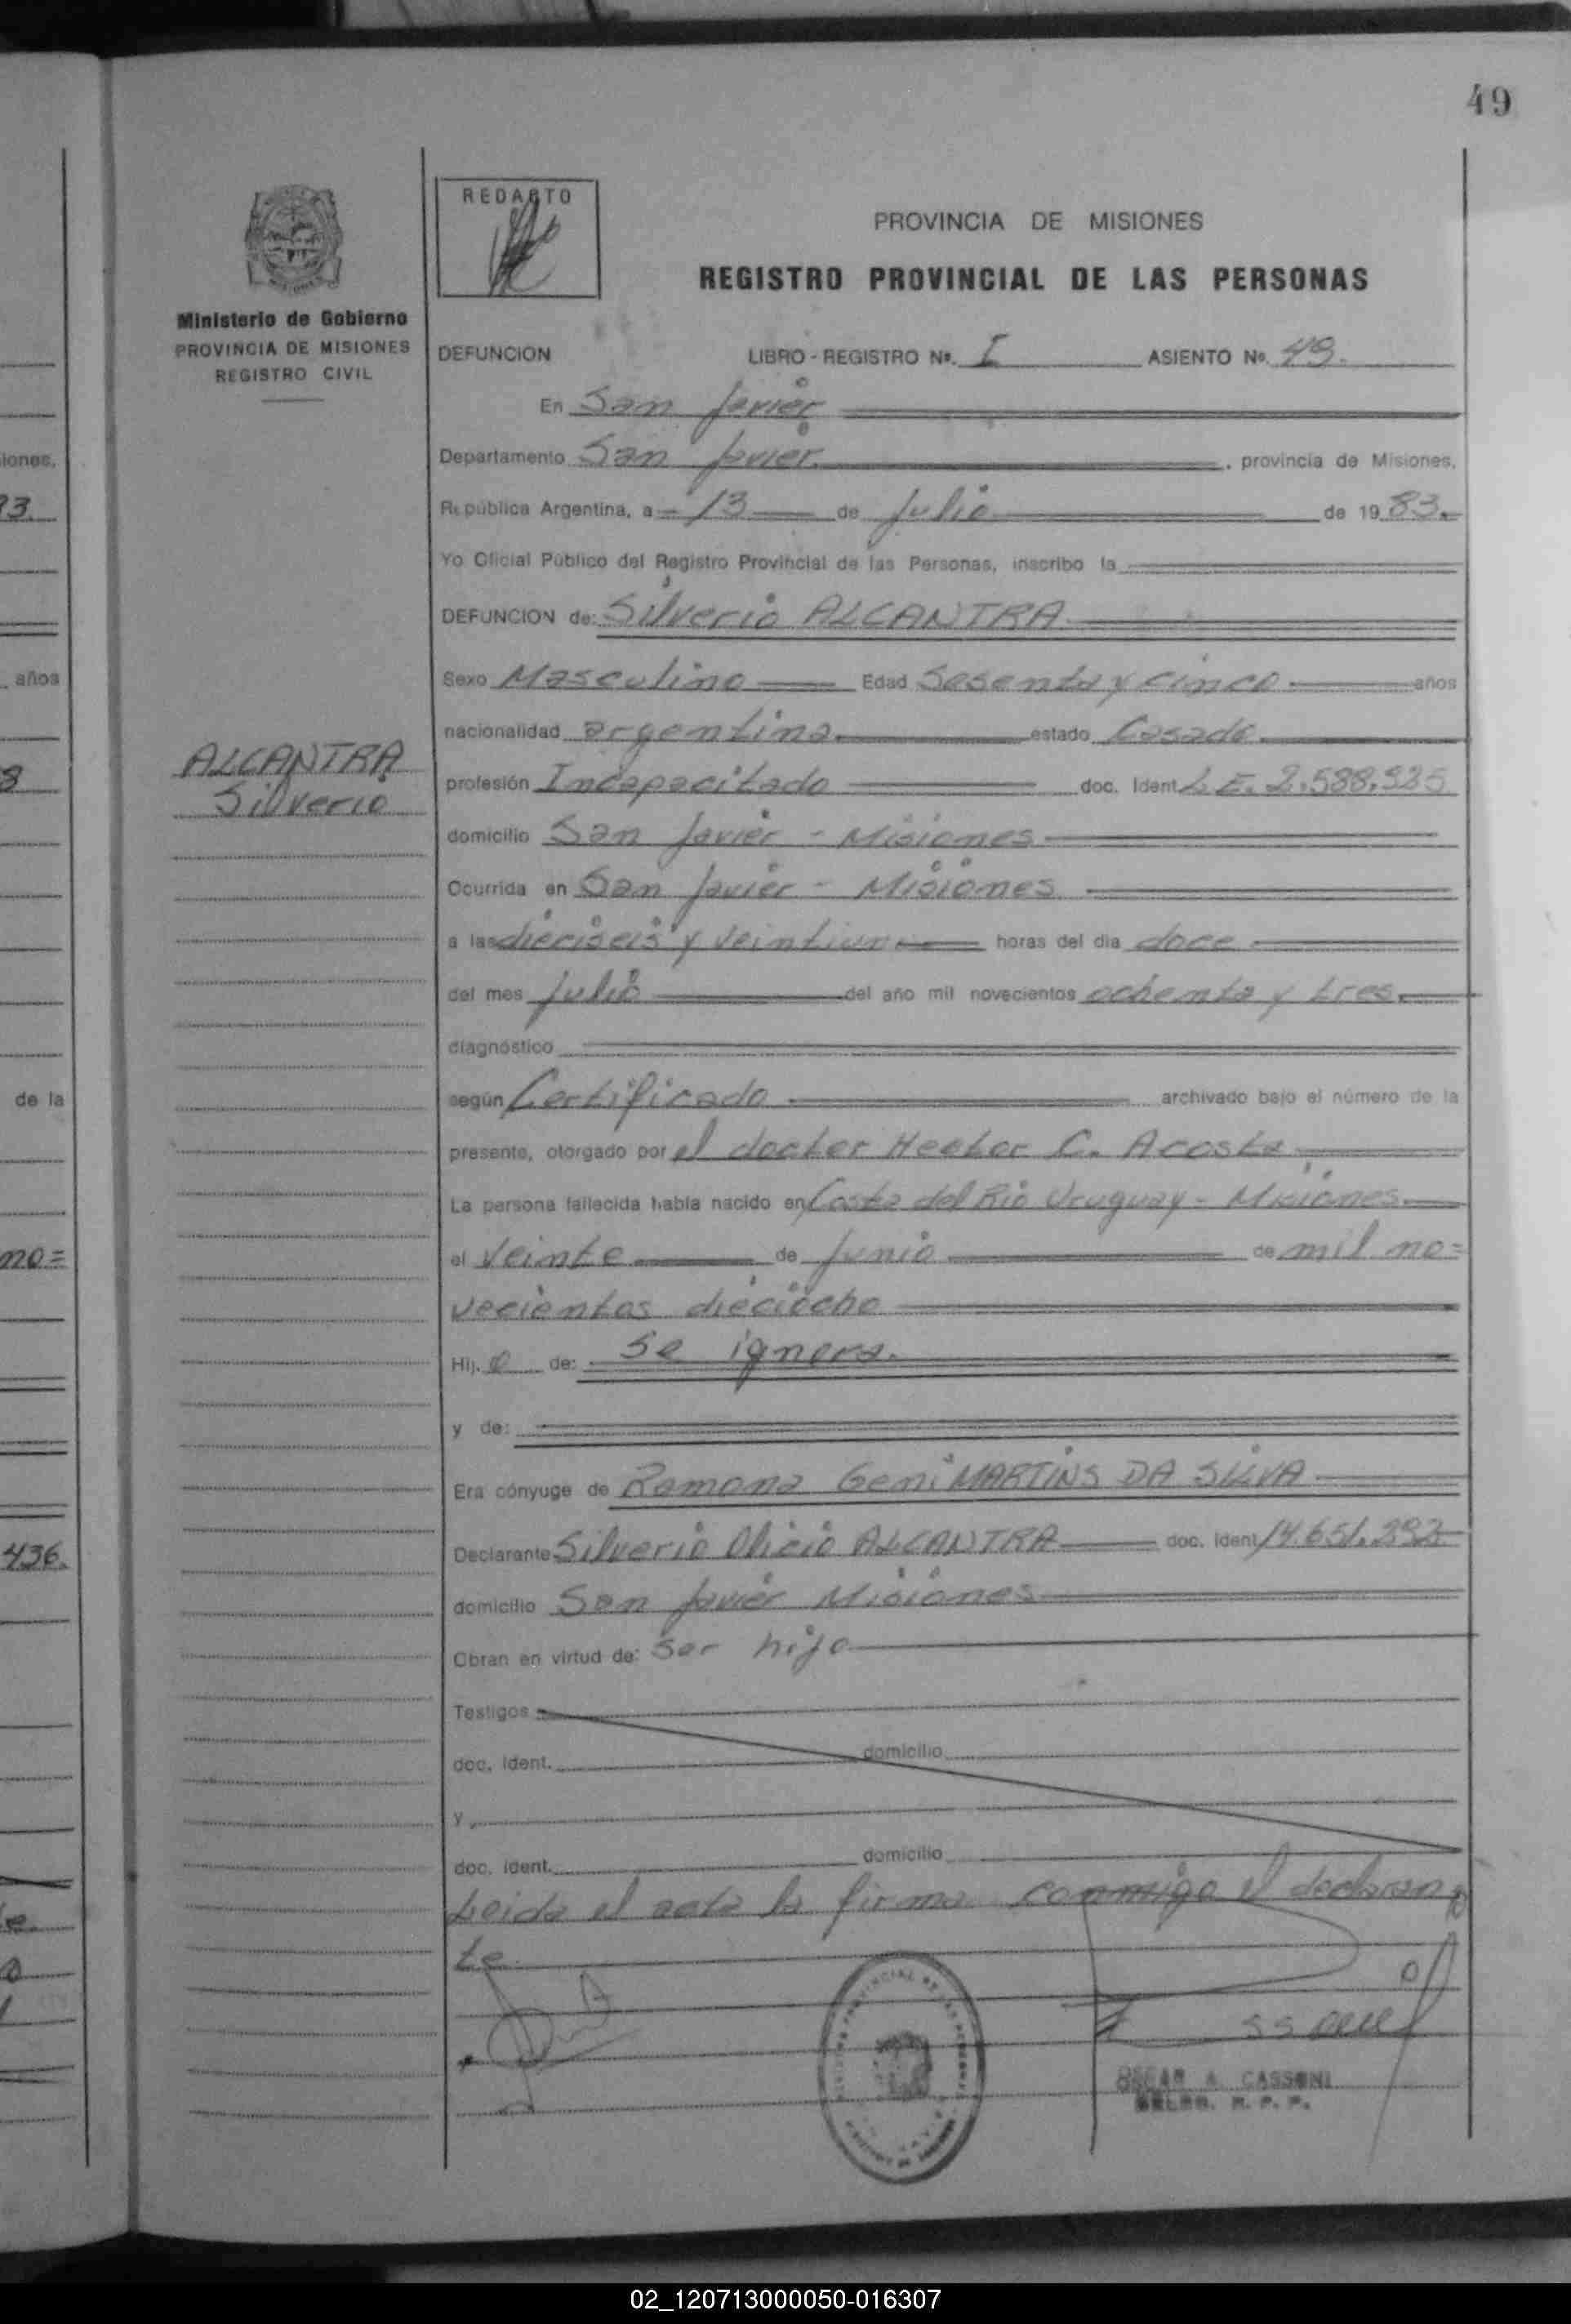 49
REDACTO
PROVINCIA DE MISIONES
REGISTRO PROVINCIAL DE LAS PERSONAS
Ministerio de Gobierno
PROVINCIA DE MISIONES
REGISTRO CIVIL
DEFUNCION LIBRO - REGISTRO Nº. I ASIENTO Nº. 49.
En San Javier
Departamento San Javier , provincia de Misiones,
República Argentina, a 13 de Julio de 1983.
Yo Oficial Público del Registro Provincial de las Personas, inscribo la
DEFUNCION de: Silverio ALCANTRA
Sexo Masculino Edad Sesenta y cinco años
nacionalidad argentina. estado Casado
ALCANTRA
Silverio
profesión Incapacitado doc. Ident L.E. 2.588.525
domicilio San Javier - Misiones
Ocurrida en San Javier - Misiones
a las dieciseis y veintiun horas del día doce
del mes Julio del año mil novecientos ochenta y tres.
diagnóstico
según Certificado archivado bajo el número de la
presente, otorgado por el doctor Hector C. Acosta
La persona fallecida había nacido en Costa del Rio Uruguay - Misiones
el Veinte de Junio de mil no=
vecientos dieciocho
Hij. o de: Se ignora.
y de:
Era cónyuge de Ramona Geni MARTINS DA SILVA
Declarante Silverio Olicio ALCANTRA doc. Ident 14.651.292
domicilio San Javier Misiones
Obran en virtud de: Ser hijo
Testigos
doc. Ident. domicilio
y
doc. Ident. domicilio
Leida el acta la firma conmigo el declaran
te.
OSCAR A. CASSONI
DELEG. R. P. P.
iones,
93.
años
8
de la
no=
436.
02_120713000050-016307